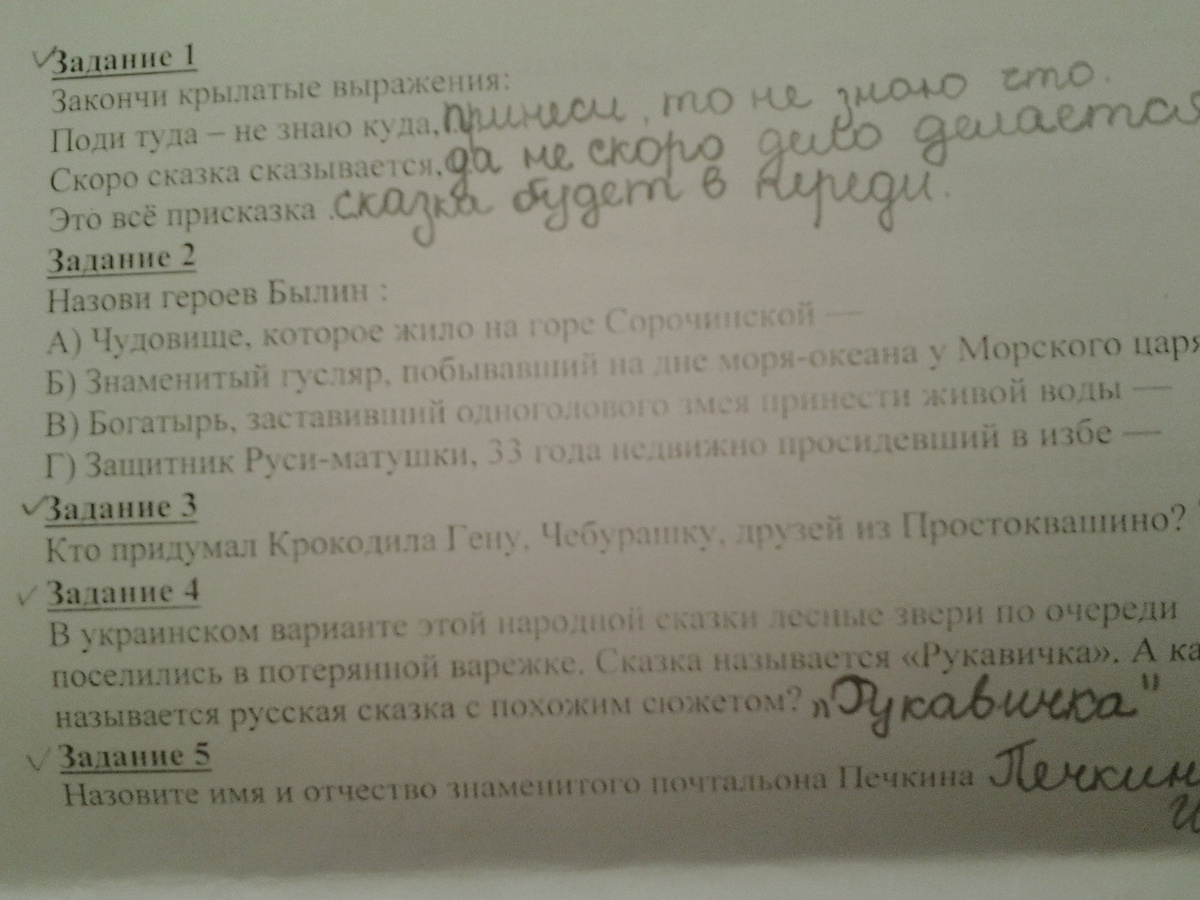 Задание 1
Закончи крылатые выражения:
Поди туда – не знаю куда, принеси, то не знаю что.
Скоро сказка сказывается, да не скоро дило делается
Это всё присказка . сказка будет в переди.
Задание 2
Назови героев Былин :
А) Чудовище, которое жило на горе Сорочинской —
Б) Знаменитый гусляр, побывавший на дне моря-океана у Морского царя
В) Богатырь, заставивший одноголового змея принести живой воды —
Г) Защитник Руси-матушки, 33 года недвижно просидевший в избе —
Задание 3
Кто придумал Крокодила Гену, Чебурашку, друзей из Простоквашино?
Задание 4
В украинском варианте этой народной сказки лесные звери по очереди
поселились в потерянной варежке. Сказка называется «Рукавичка». А ка
называется русская сказка с похожим сюжетом? „Рукавичка"
Задание 5
Назовите имя и отчество знаменитого почтальона Печкина Печкин